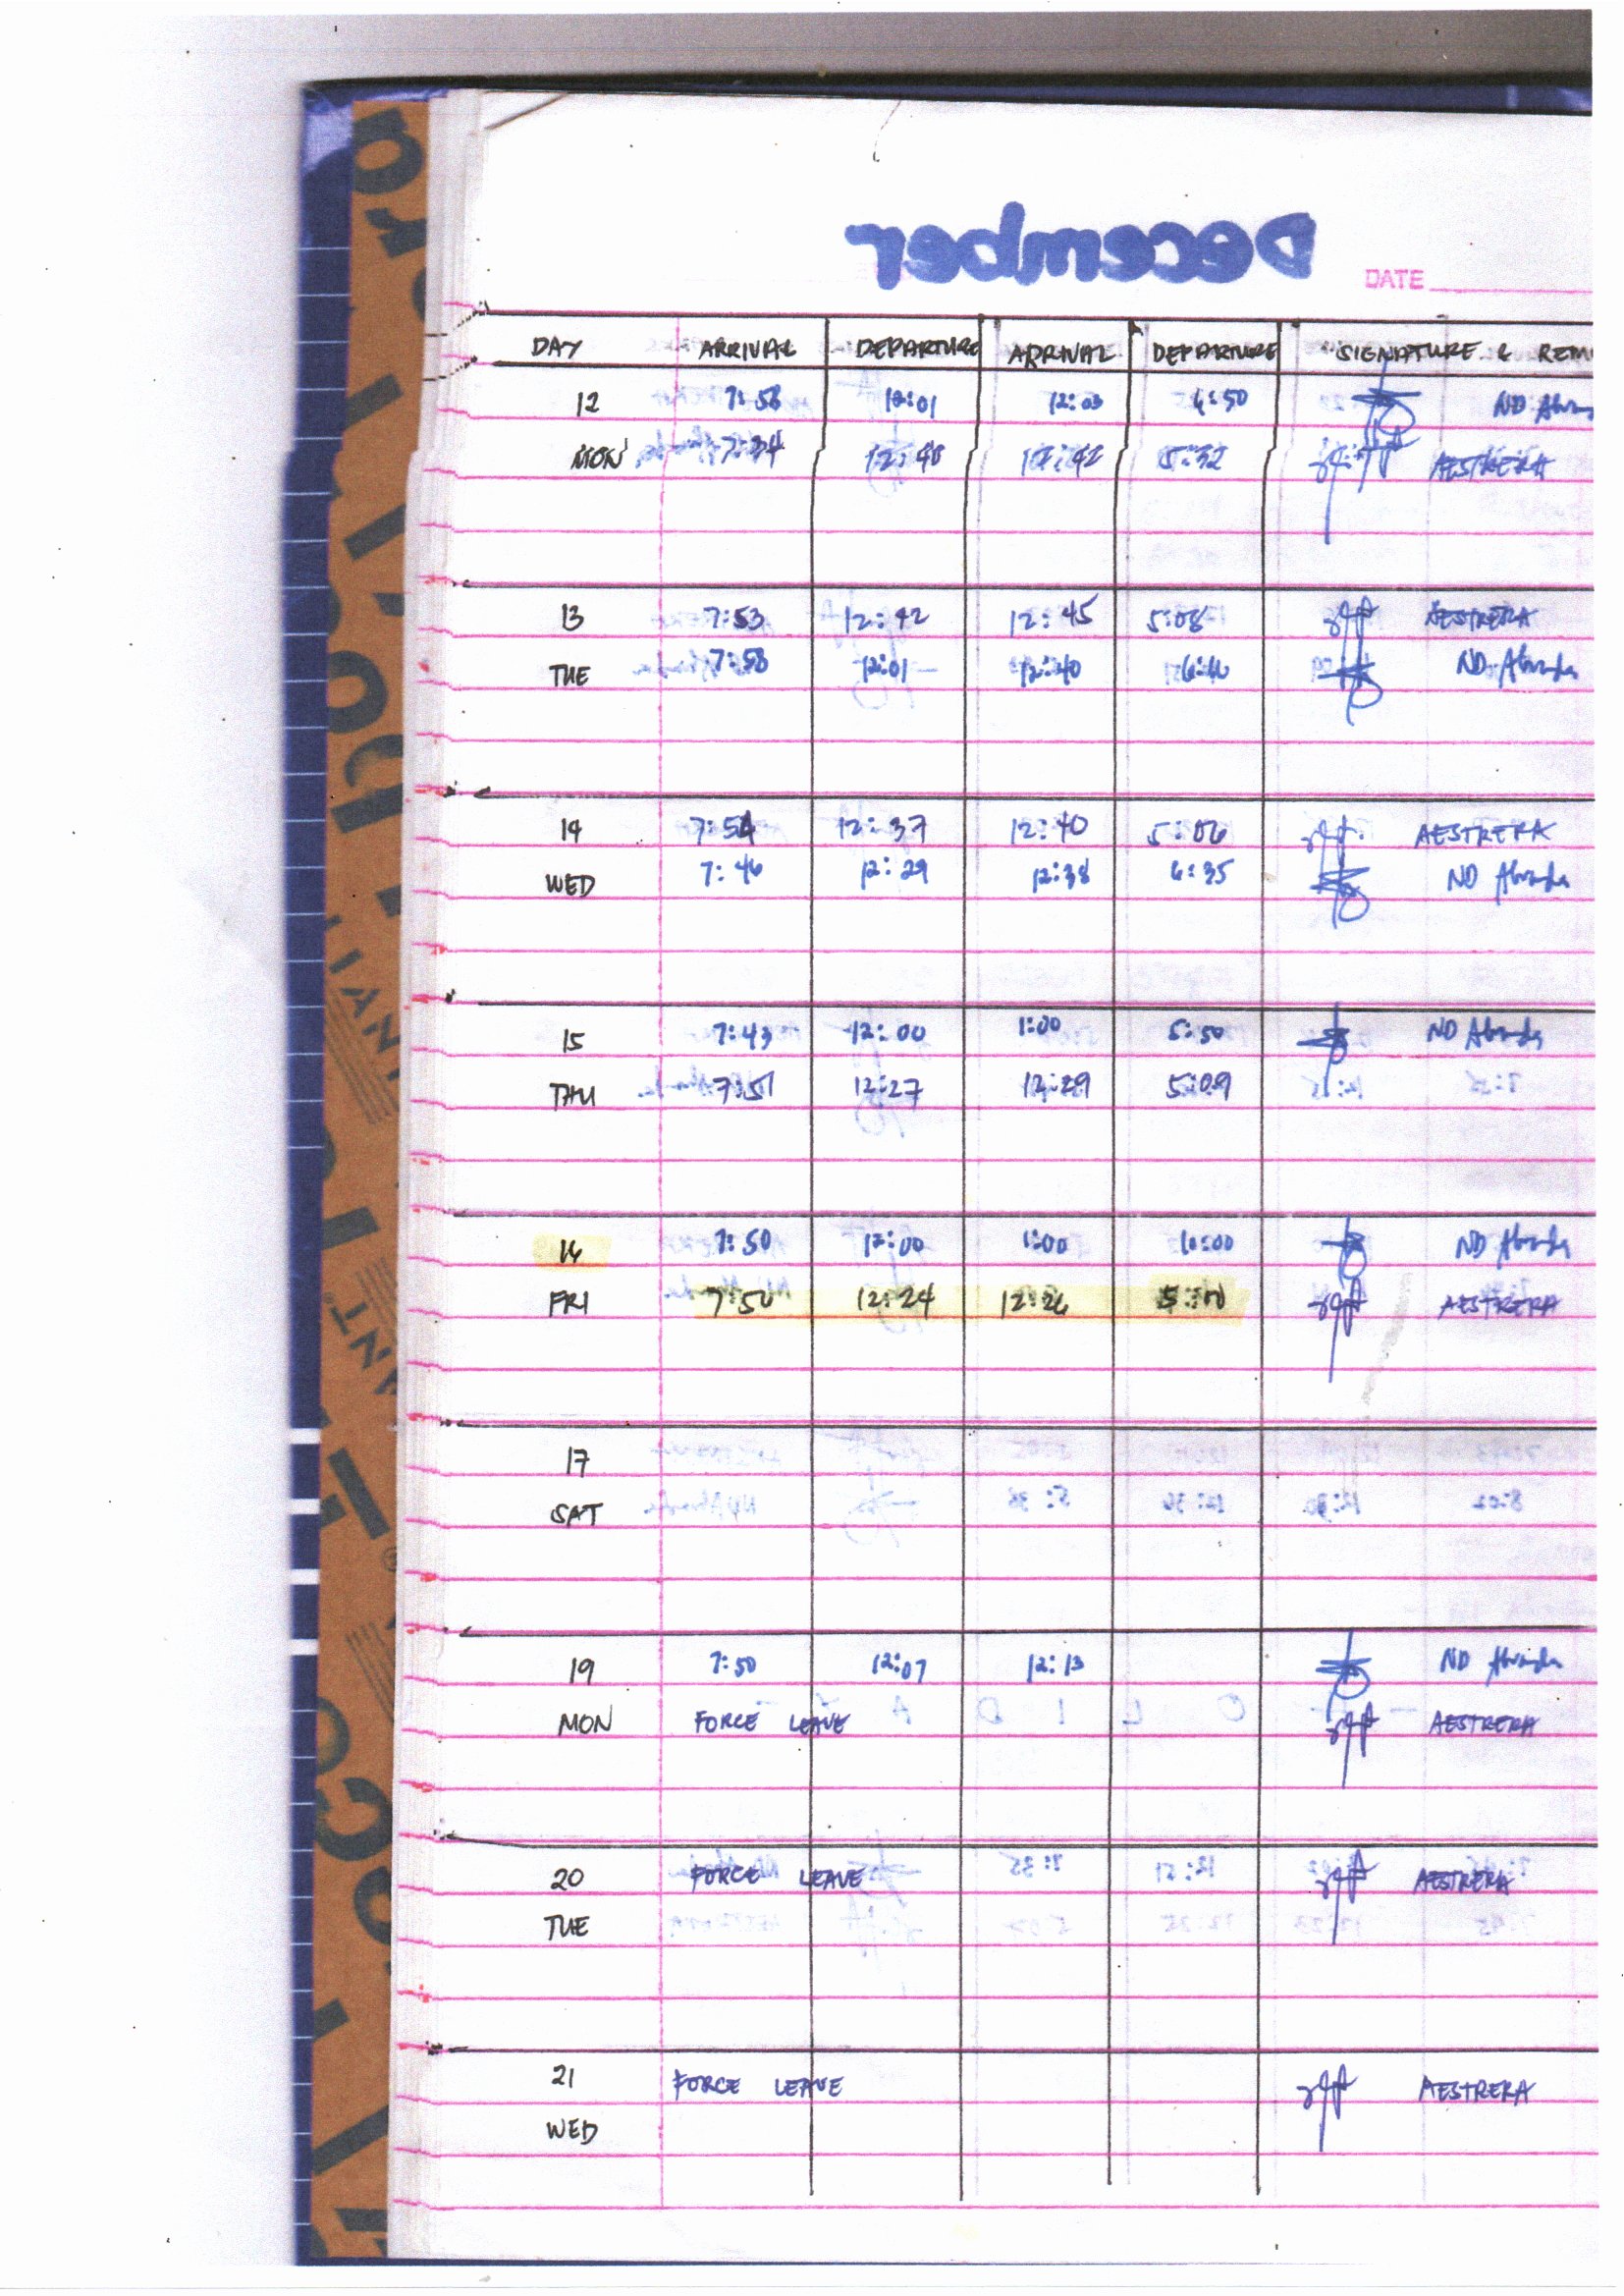 December
DATE
DAY ARRIVAL DEPARTURE ARRIVAL DEPARTURE SIGNATURE & REM
12 7:58 12:01 12:03 6:50 ND
MON 7:34 12:40 12:42 5:32 AESTRERA
13 7:53 12:42 12:45 5:08 AESTRERA
TUE 7:58 12:01 12:40 ND
14 7:54 12:37 12:40 5:06 AESTRERA
WED 7:46 12:29 12:38 6:35 ND
15 7:43 12:00 1:00 5:50 ND
THU 7:51 12:27 12:29 5:09
16 7:50 12:00 1:00 10:00 ND
FRI 7:50 12:24 12:26 AESTRERA
17
SAT
19 7:50 12:07 12:13 ND
MON FORCE LEAVE AESTRERA
20 FORCE LEAVE AESTRERA
TUE
21 FORCE LEAVE AESTRERA
WED